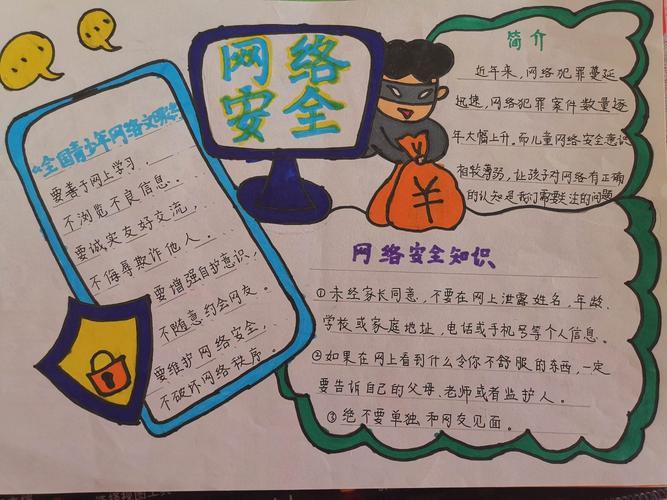 网络
安全
简介
近年来，网络犯罪蔓延
迅速，网络犯罪案件数量逐
年大幅上升。而儿童网络安全意识
相较薄弱，让孩子对网络有正确
的认知是我们需要关注的问题
《全国青少年网络文明公约
要善于网上学习，
不浏览不良信息。
要诚实友好交流，
不侮辱欺诈他人。
要增强自护意识，
不随意约会网友。
要维护网络安全，
不破坏网络秩序。
¥
网络安全知识
①未经家长同意，不要在网上泄露姓名，年龄，
学校或家庭地址，电话或手机号等个人信息。
②如果在网上看到什么令你不舒服的东西，一定
要告诉自己的父母、老师或者监护人。
③绝不要单独和网友见面。